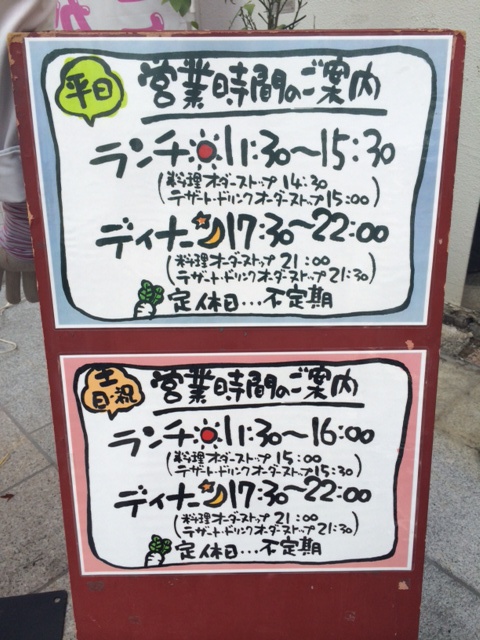 平日
営業時間のご案内
ランチ 11:30〜15:30
(料理オーダーストップ 14:30
デザート・ドリンクオーダーストップ 15:00)
ディナー 17:30〜22:00
(料理オーダーストップ 21:00
デザート・ドリンクオーダーストップ 21:30)
定休日…不定期
土・日・祝
営業時間のご案内
ランチ 11:30〜16:00
(料理オーダーストップ 15:00
デザート・ドリンクオーダーストップ 15:30)
ディナー 17:30〜22:00
(料理オーダーストップ 21:00
デザート・ドリンクオーダーストップ 21:30)
定休日…不定期